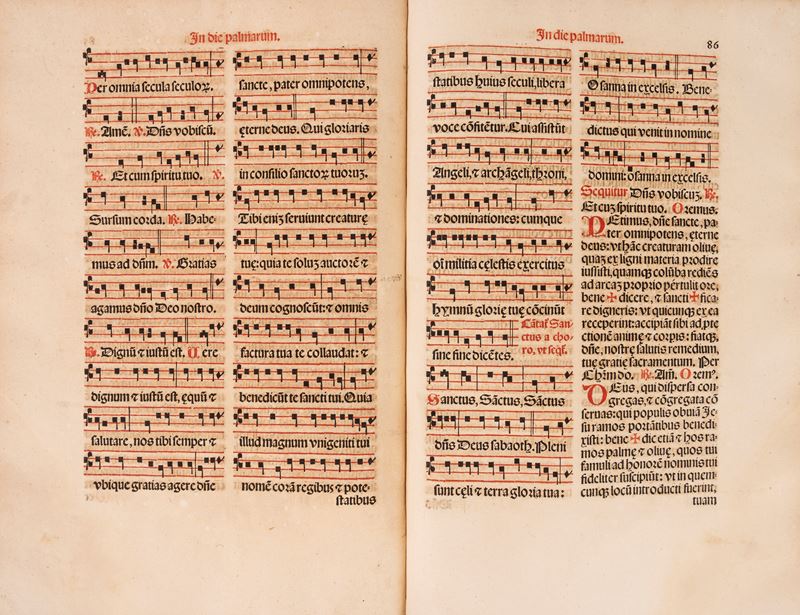 In die palmarum.
Per omnia secula seculoꝝ.
℟. Amē. ℣. Dñs vobiscū.
℟. Et cum spiritu tuo. ℣.
Sursum corda. ℟. Habe-
mus ad dñm. ℣. Gratias
agamus dño Deo nostro.
℟. Dignū & iustū est. Uere
dignum & iustū est, ęquū &
salutare, nos tibi semper &
vbique gratias agere dñe
sancte, pater omnipotens,
ęterne deus. Qui gloriaris
in consilio sanctoꝝ tuorum.
Tibi enim seruiunt creaturę
tuę: quia te solum auctorē &
deum cognoscūt: & omnis
factura tua te collaudat: &
benedicūt te sancti tui. Quia
illud magnum vnigeniti tui
nomē corā regibus & pote-
statibus
In die palmarum.
86
statibus huius seculi, libera
voce cōfitētur. Cui assistūt
Angeli, & archāgeli, throni,
& dominationes: cumque
oī militia cęlestis exercitus
hymnū glorię tuę cōcinūt
Cātať San-
ctus a cho-
ro, vt seqť.
sine fine dicētes.
Sanctus, Sāctus, Sāctus
dñs Deus sabaoth. Pleni
sunt cęli & terra gloria tua:
Osanna in excelsis. Bene-
dictus qui venit in nomine
domini: osanna in excelsis.
Sequitur Dñs vobiscum. ℟.
Et cum spiritu tuo. Oremus.
PEtimus, dñe sancte, pa-
ter omnipotens, ęterne
deus: vt hāc creaturam oliuę,
quam ex ligni materia prodire
iussisti, quamqꝫ colūba rediēs
ad arcam proprio pertulit ore,
bene✠dicere, & sancti✠fica-
re digneris: vt quicunqꝫ ex ea
receperint: accipiāt sibi ad ꝓte
ctionē animę & corpīs: fiatqꝫ,
dñe, nostrę salutis remedium,
tuę gratię sacramentum. Per
Christum do. ℟. Amē. Oremꝰ.
DEus, qui dispersa con-
gregas, & cōgregata cō
seruas: qui populis obuiā Je-
su ramos portātibus benedi-
xisti: bene✠dic etiā & hos ra-
mos palmę & oliuę, quos tui
famuli ad honorē nominis tui
fideliter suscipiūt: vt in quem-
cunqꝫ locū introducti fuerint,
tuam